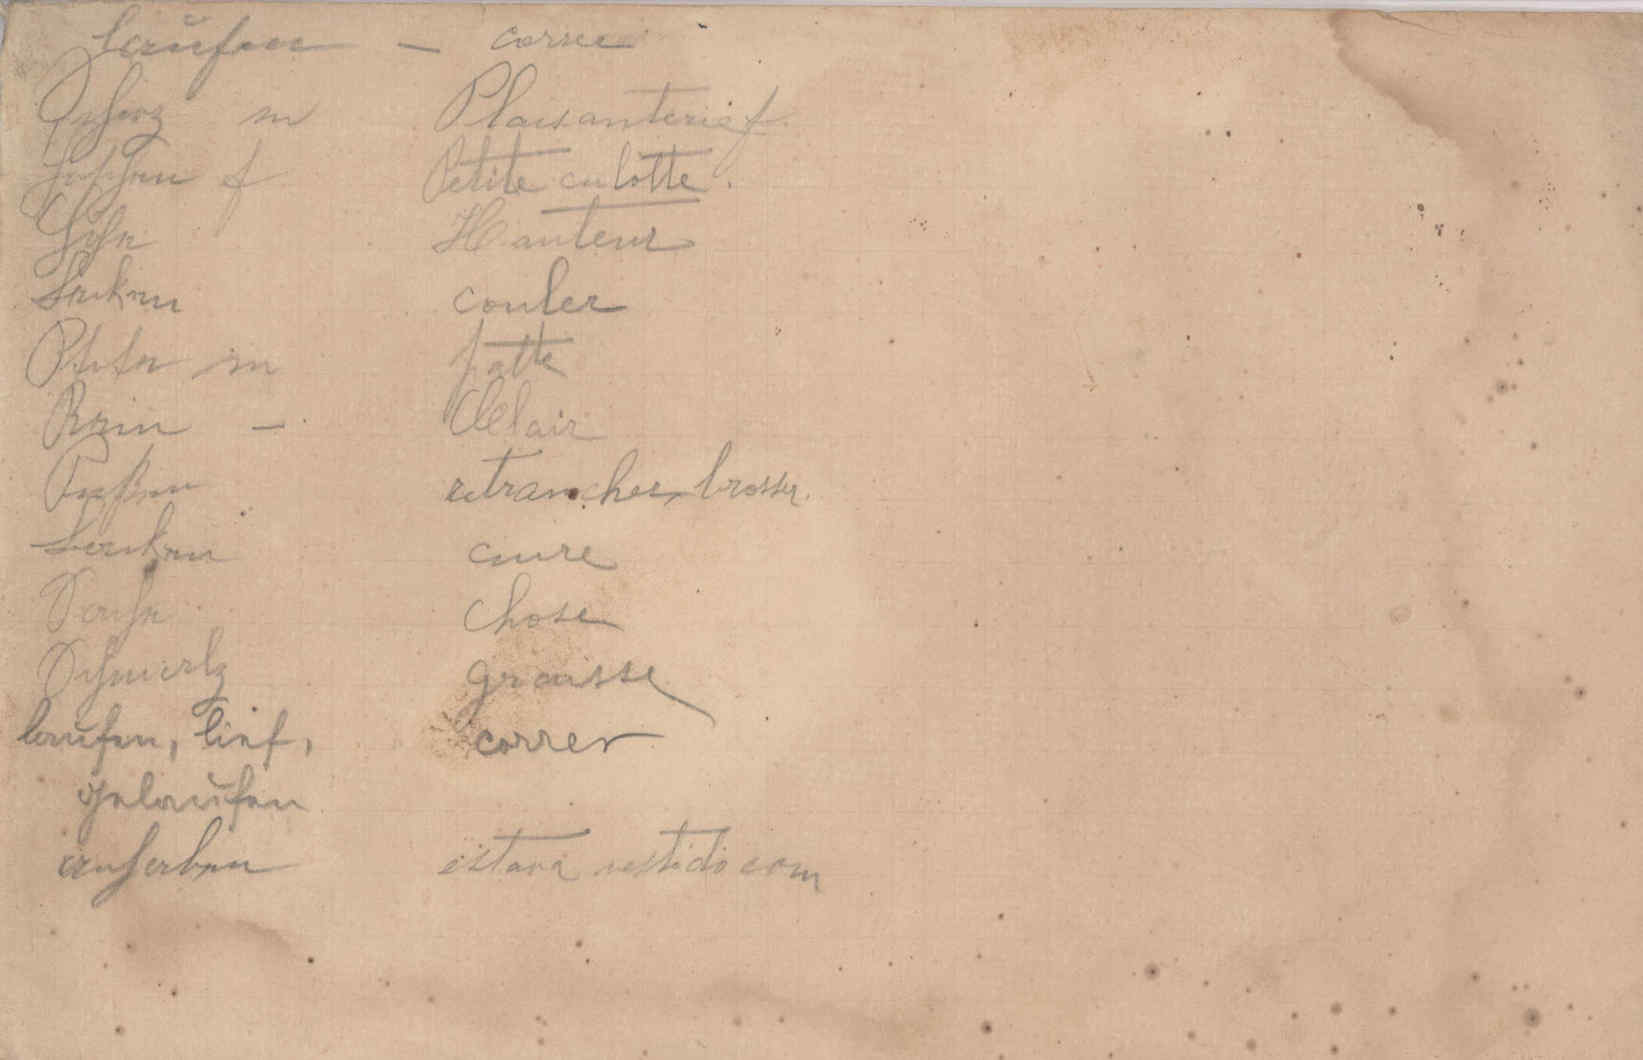 laufen — correr
Scherz m Plaisanterie f.
Höschen f Petite culotte.
Höhe Hauteur
Senken couler
Pfote m patte
Rein — Clair
Putzen retrancher, brosser.
cuire
Sache Chose
Schmerlz Graisse
laufen, lief, correr
gelaufen
anhaben estava vestido com